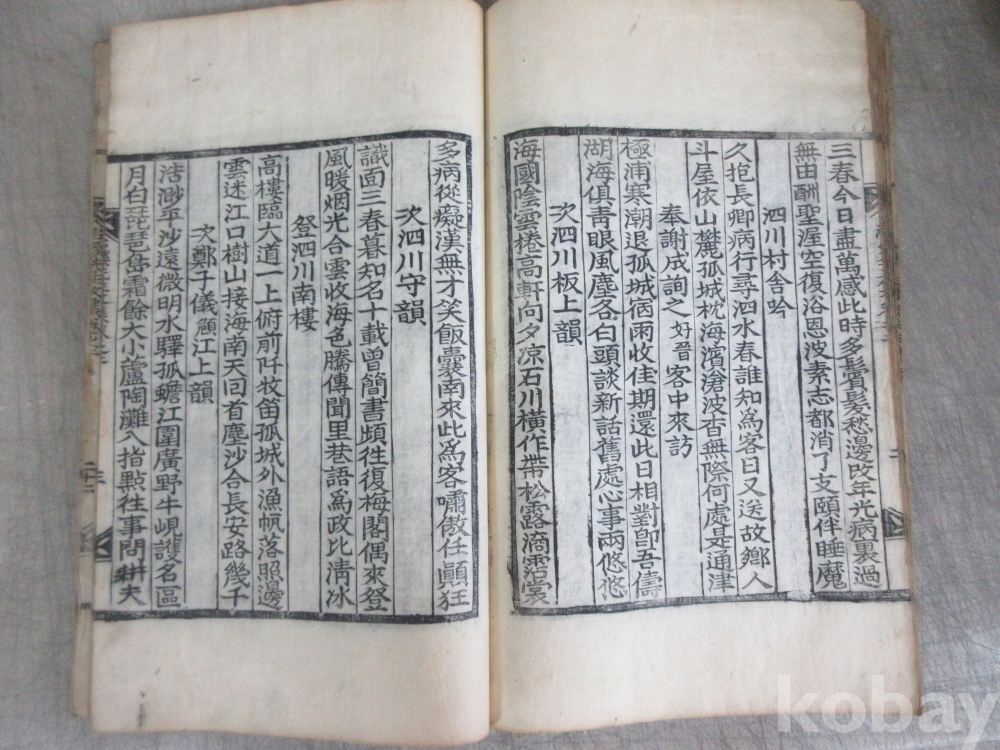 三春今日盡萬感此時多鬂髮愁邊改年光病裏過
無田酬聖渥空復浴恩波素志都消了支頤伴睡魔
泗川村舍吟
久抱長卿病行尋泗水春誰知為客日又送故鄉人
斗屋依山麓孤城枕海濱滄波杳無際何處是通津
奉謝成詢之好晉客中來訪
極浦寒潮退孤城宿雨收佳期還此日相對卽吾儔
湖海俱青眼風塵各白頭談新話舊處心事兩悠悠
次泗川板上韻
海國陰雲捲高軒向夕凉石川橫作帶松露滴霑裳
多病從癡漢無才笑飯囊南來此為客嘯傲任顚狂
次泗川守韻
識面三春暮知名十載曾簡書頻徃復梅閣偶來登
風暖烟光合雲收海色騰傳聞里巷語為政比淸冰
登泗川南樓
高樓臨大道一上俯前阡牧笛孤城外漁帆落照邊
雲迷江口樹山接海南天回首塵沙合長安路幾千
次鄭子儀顧江上韻
浩渺平沙遠微明水驛孤蟾江圍廣野牛峴護名區
月白琵琶島霜餘大小蘆陶灘入指點徃事問耕夫
二十二
kobay